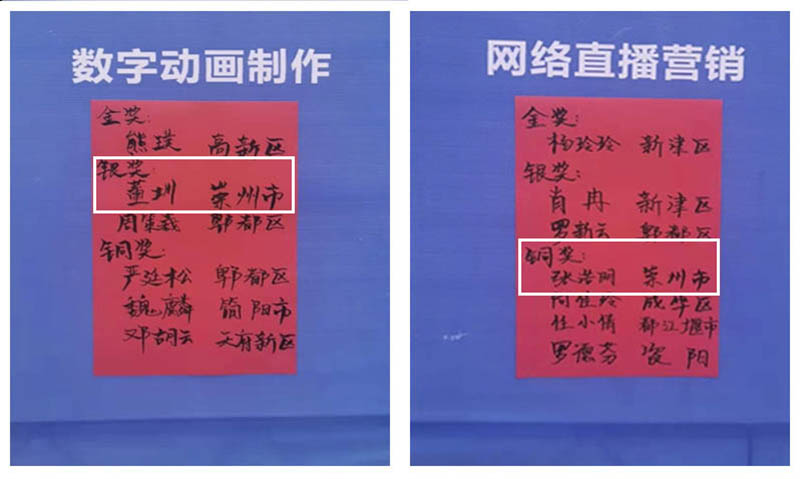 数字动画制作
金奖:
熊璞 高新区
银奖:
董圳 崇州市
周 郫都区
铜奖:
严延松 郫都区
魏麟 简阳市
邓胡云 天府新区
网络直播营销
金奖:
杨玲玲 新津区
银奖:
肖冉 新津区
罗新云 郫都区
铜奖:
张浩明 崇州市
佳玲 成华区
任小倩 都江堰市
罗德芬 资阳